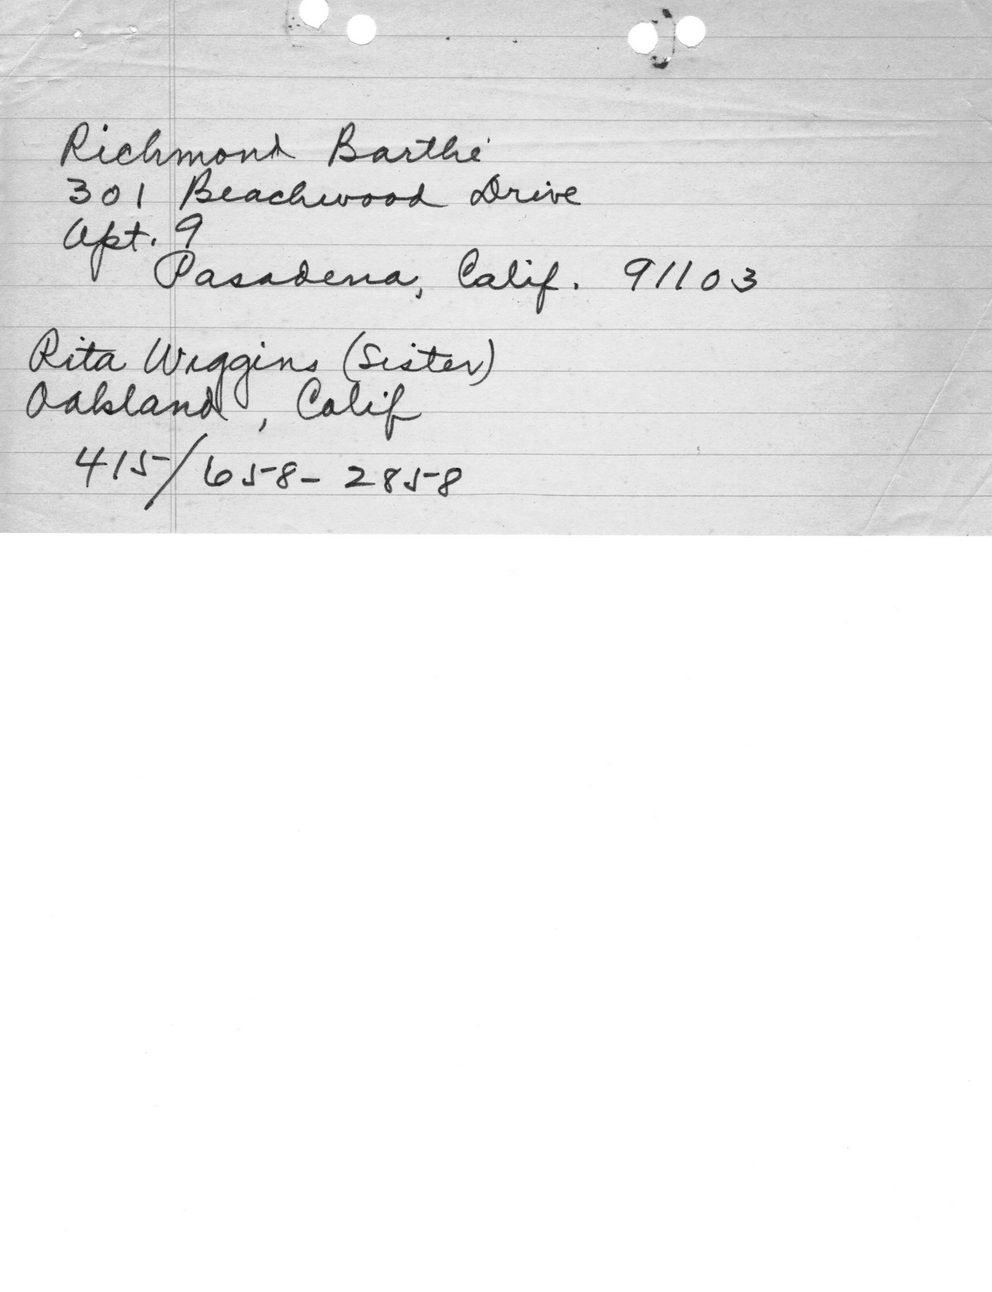 Richmond Barthé
301 Beachwood Drive
Apt. 9
Pasadena, Calif. 91103
Rita Wiggins (Sister)
Oakland, Calif
415/658-2858